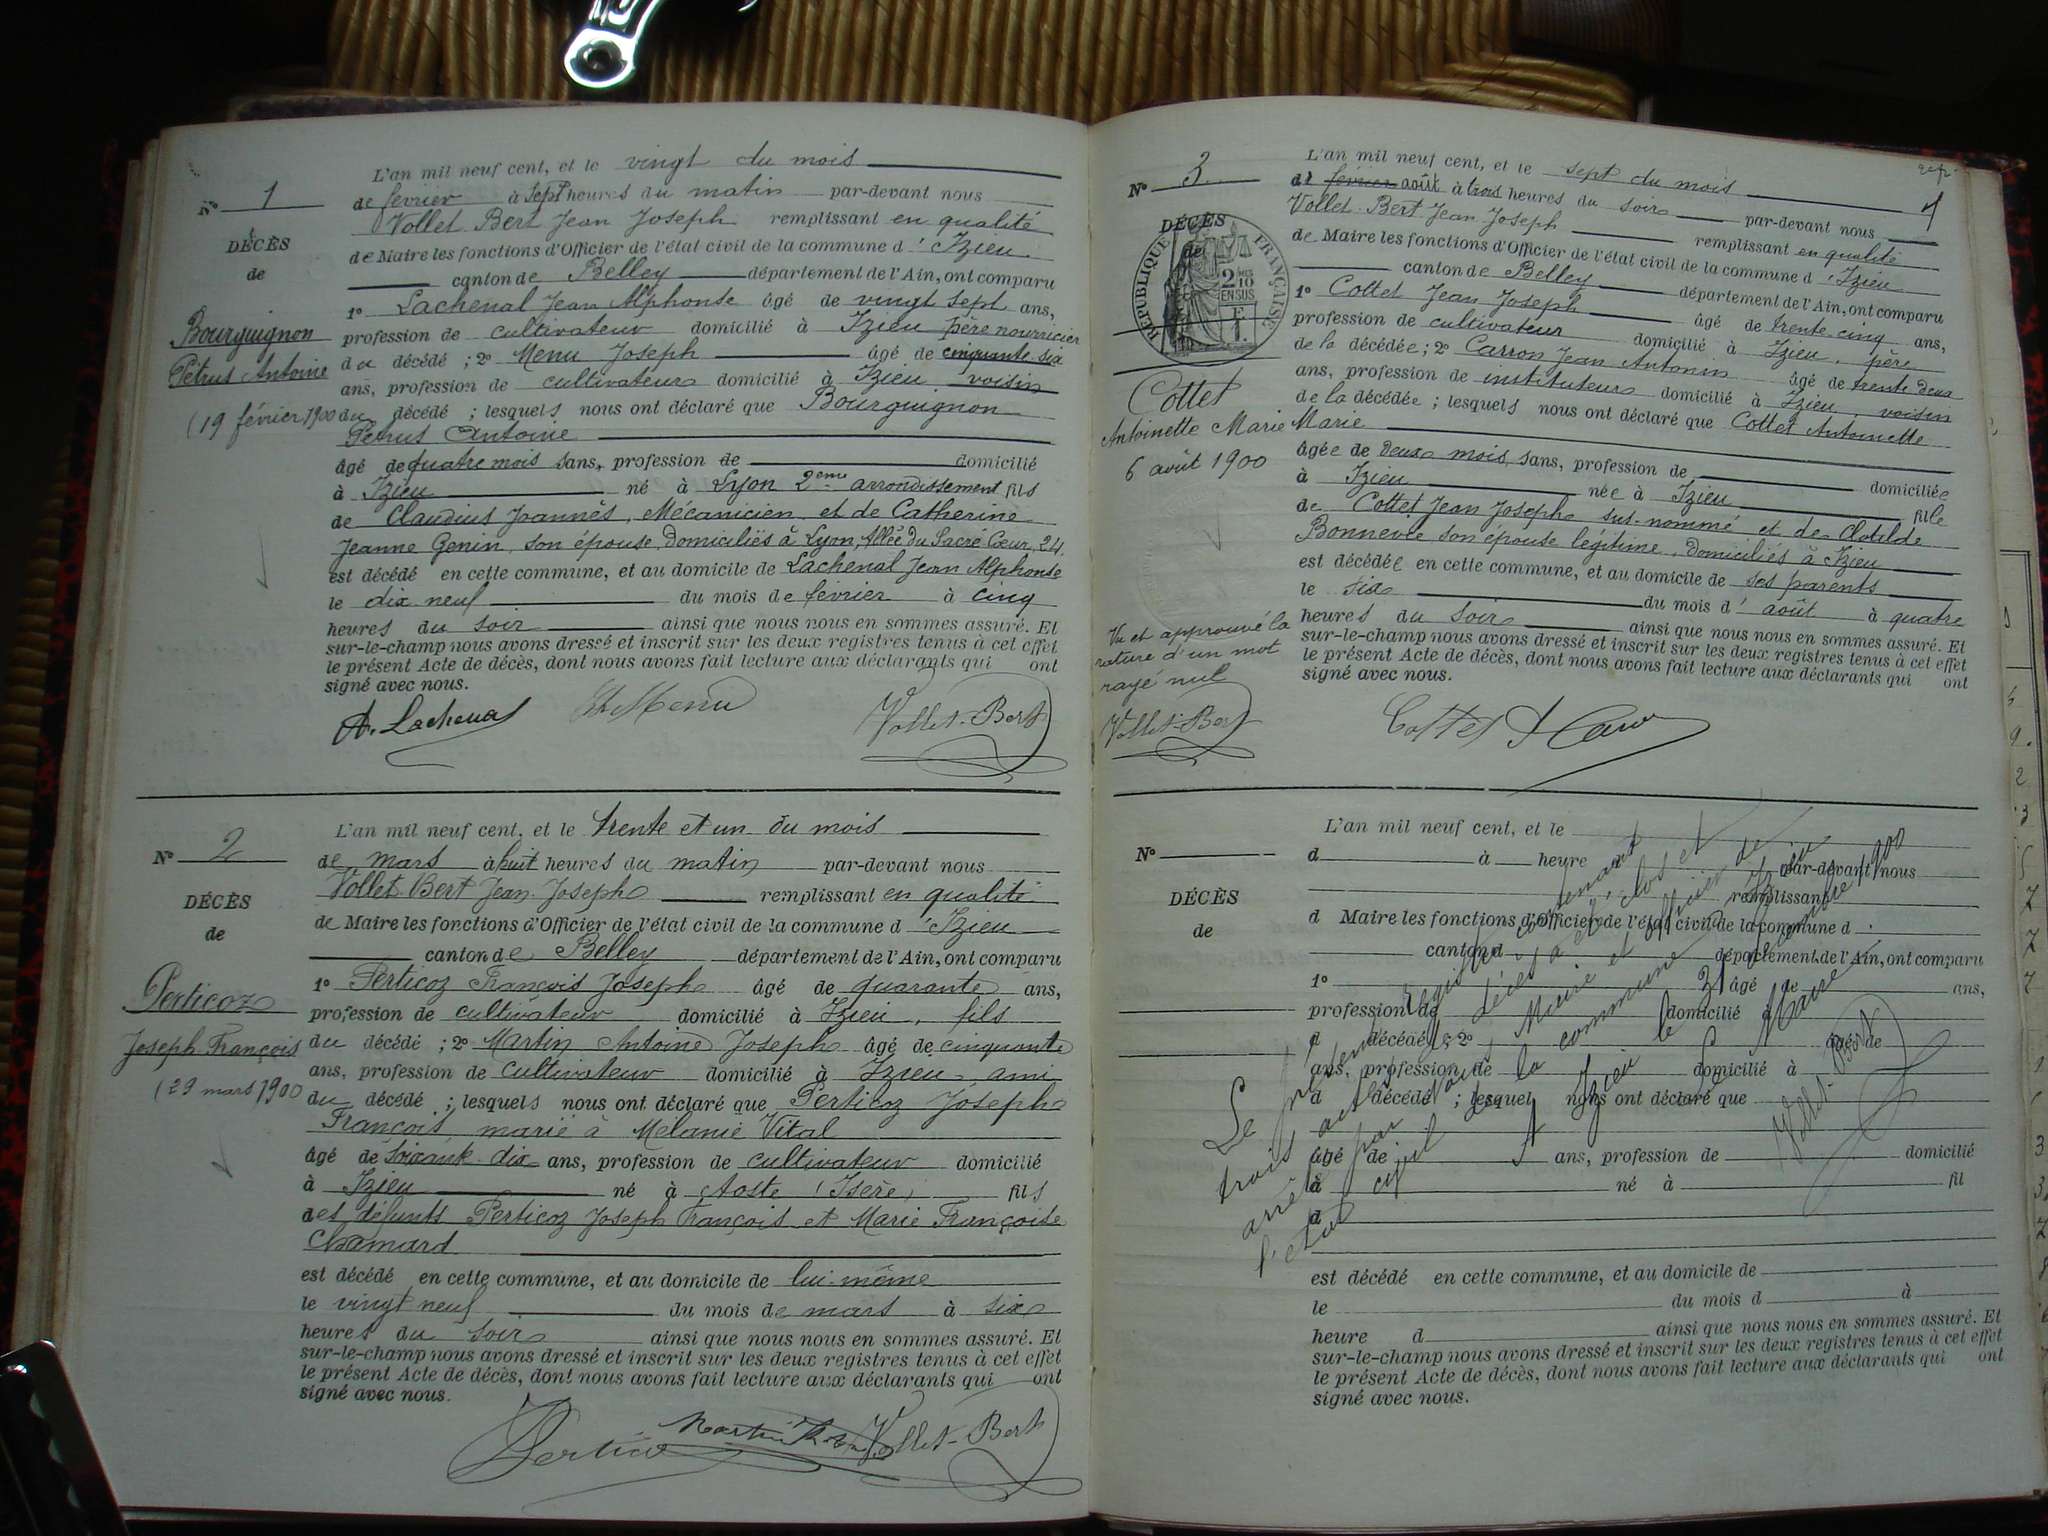 L'an mil neuf cent, et le vingt du mois
N° 1
de février à sept heures du matin par-devant nous
Vollet Bert Jean Joseph remplissant en qualité
DÉCÈS
de Maire les fonctions d'Officier de l'état civil de la commune d'Izieu
de
canton de Belley département de l'Ain, ont comparu
1° Lachenal Jean Alphonse âgé de vingt sept ans,
Bourguignon
profession de cultivateur domicilié à Izieu père nourricier
Pétrus Antoine
du décédé ; 2° Menu Joseph âgé de cinquante six
ans, profession de cultivateur domicilié à Izieu voisin
(19 février 1900
du décédé ; lesquels nous ont déclaré que Bourguignon
Petrus Antoine
âgé de quatre mois sans, profession de domicilié
à Izieu né à Lyon 2eme arrondissement fils
de Claudius Joannès, Mécanicien et de Catherine
Jeanne Genin, son épouse, domiciliés à Lyon, Allée du Sacré Cœur, 24,
est décédé en cette commune, et au domicile de Lachenal Jean Alphonse
le dix neuf du mois de février à cinq
heures du soir ainsi que nous nous en sommes assuré. Et
sur-le-champ nous avons dressé et inscrit sur les deux registres tenus à cet effet
le présent Acte de décès, dont nous avons fait lecture aux déclarants qui ont
signé avec nous.
A. Lachenal Menu Vollet-Bert
L'an mil neuf cent, et le trente et un du mois
N° 2
de mars à huit heures du matin par-devant nous
Vollet Bert Jean Joseph remplissant en qualité
DÉCÈS
de Maire les fonctions d'Officier de l'état civil de la commune d'Izieu
de
canton de Belley département de l'Ain, ont comparu
1° Perticoz François Joseph âgé de quarante ans,
Perticoz
profession de cultivateur domicilié à Izieu, fils
Joseph François
du décédé ; 2° Martin Antoine Joseph âgé de cinquante
ans, profession de cultivateur domicilié à Izieu ami
(29 mars 1900
du décédé ; lesquels nous ont déclaré que Perticoz Joseph
François, marié à Mélanie Vital
âgé de soixante dix ans, profession de cultivateur domicilié
à Izieu né à Aoste (Isère) fils
des défunts Perticoz Joseph François et Marie Françoise
Chamard
est décédé en cette commune, et au domicile de lui-même
le vingt neuf du mois de mars à six
heures du soir ainsi que nous nous en sommes assuré. Et
sur-le-champ nous avons dressé et inscrit sur les deux registres tenus à cet effet
le présent Acte de décès, dont nous avons fait lecture aux déclarants qui ont
signé avec nous.
Perticoz Martin Vollet-Bert
L'an mil neuf cent, et le sept du mois
N° 3
d' février août à trois heures du soir par-devant nous
Vollet-Bert Jean Joseph remplissant en qualité
DÉCÈS
de
RÉPUBLIQUE FRANÇAISE
2/10 EN SUS
de Maire les fonctions d'Officier de l'état civil de la commune d'Izieu
canton de Belley département de l'Ain, ont comparu
1° Cottet Jean Joseph âgé de trente cinq ans,
profession de cultivateur domicilié à Izieu, père
de la décédée ; 2° Carron Jean Antonin âgé de trente deux
ans, profession de instituteur domicilié à Izieu, voisin
Cottet
Antoinette Marie
6 août 1900
de la décédée ; lesquels nous ont déclaré que Cottet Antoinette
Marie
âgée de deux mois, sans, profession de domiciliée
à Izieu née à Izieu fille
de Cottet Jean Joseph sus-nommé et de Clotilde
Bonnevie son épouse légitime, domiciliés à Izieu
est décédée en cette commune, et au domicile de ses parents
le six du mois d'août à quatre
heures du soir ainsi que nous nous en sommes assuré. Et
sur-le-champ nous avons dressé et inscrit sur les deux registres tenus à cet effet
le présent Acte de décès, dont nous avons fait lecture aux déclarants qui ont
signé avec nous.
Vu et approuvé la
rature d'un mot
rayé nul
Vollet-Bert
Cottet
L'an mil neuf cent, et le
N°
d à heure par-devant nous
remplissant
DÉCÈS
d Maire les fonctions d'Officier de l'état civil de la commune d
de
canton d département de l'Ain, ont comparu
1° âgé de ans,
profession de domicilié à
d décédé ; 2° âgé de
ans, profession de domicilié à
d décédé ; lesquel nous ont déclaré que
âgé de ans, profession de domicilié
à né à fil
d
est décédé en cette commune, et au domicile de
le du mois d à
heure d ainsi que nous nous en sommes assuré. Et
sur-le-champ nous avons dressé et inscrit sur les deux registres tenus à cet effet
le présent Acte de décès, dont nous avons fait lecture aux déclarants qui ont
signé avec nous.
Le présent registre contenant
trois actes de décès a été clos et
arrêté par nous Maire et officier de
l'état civil de la commune d'Izieu
A Izieu le 31 décembre 1900
Le Maire
Vollet-Bert